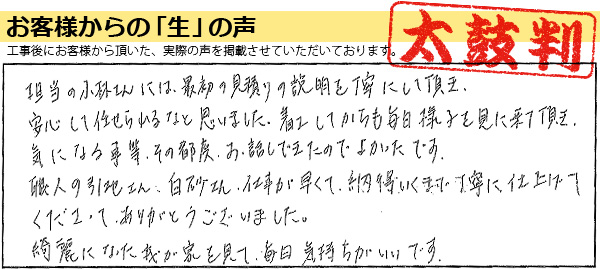 お客様からの「生」の声
工事後にお客様から頂いた、実際の声を掲載させていただいております。
太鼓判
担当の小林さんには、最初の見積りの説明を丁寧にして頂き、
安心して任せられるなと思いました。着工してからも毎日様子を見に来て頂き、
気になる事等、その都度、お話しできたのでよかったです。
職人の引地さん、白砂さん、仕事が早くて、納得いくまで丁寧に、仕上げて
くださって、ありがとうございました。
綺麗になった我が家を見て、毎日気持ちがいいです。